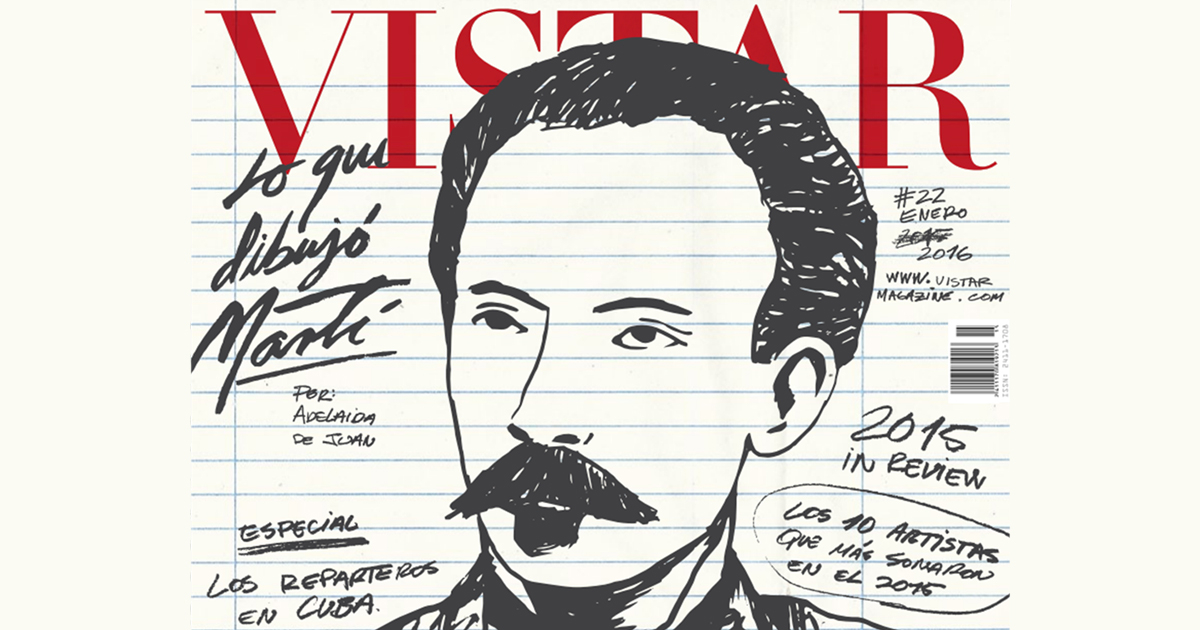 VISTAR
Lo que
dibujó
Martí
POR:
ADELAIDA
DE JUAN
ESPECIAL
LOS REPARTEROS
EN CUBA.
#22
ENERO
2015
2016
WWW.VISTAR
MAGAZINE.COM
ISSN: 2411-1708
2015
IN REVIEW
LOS 10 ARTISTAS
QUE MÁS SONARON
EN EL 2015